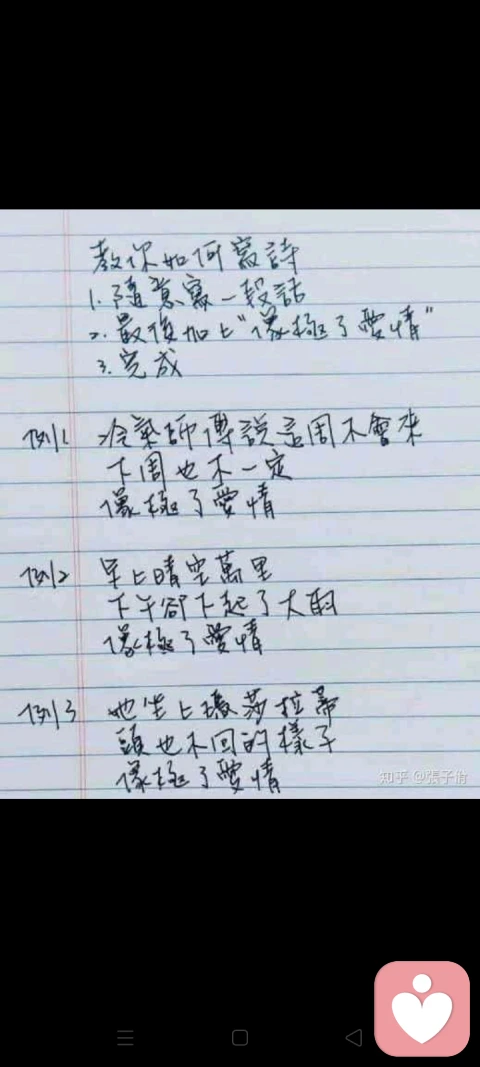 教你如何寫詩
1. 隨意寫一段話
2. 最後加上"像極了愛情"
3. 完成
例1 冷氣師傅說這周不會來
下周也不一定
像極了愛情
例2 早上晴空萬里
下午卻下起了大雨
像極了愛情
例3 她坐上瑪莎拉蒂
頭也不回的樣子
像極了愛情
知乎 @張子怡